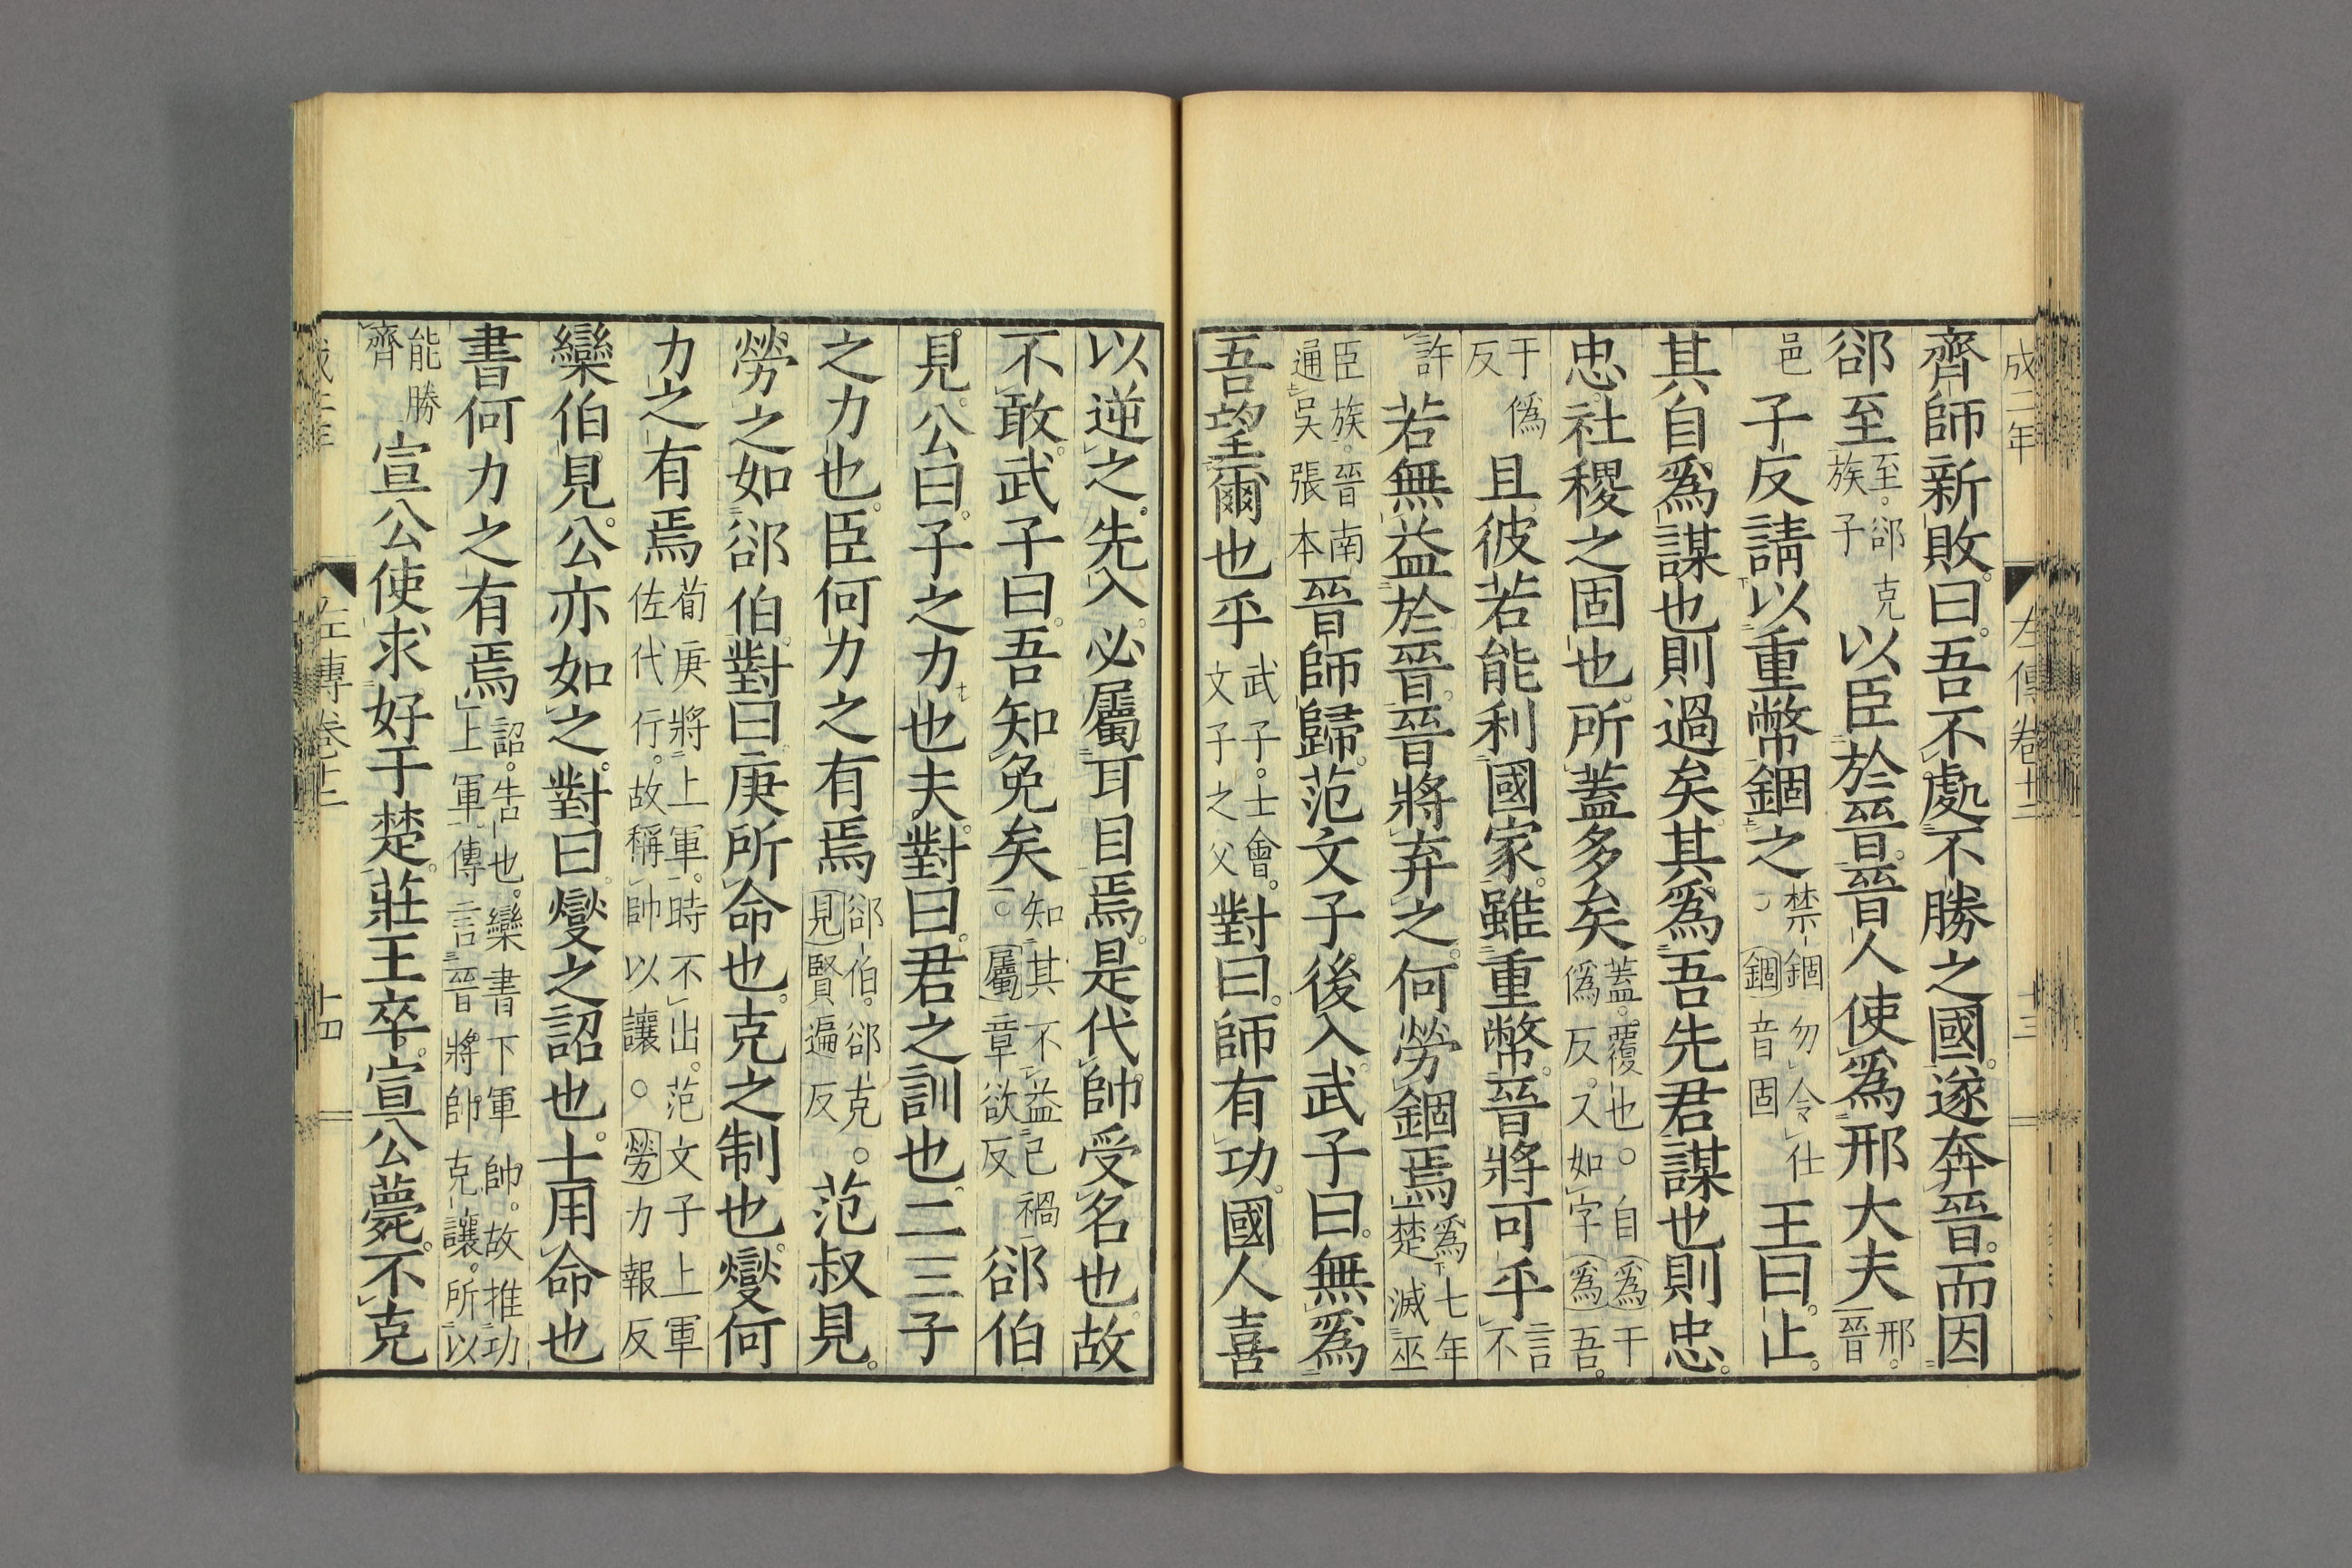 成二年 左傳卷十二 十三
齊師新敗。曰。吾不處不勝之國。遂奔晉。而因
郤至至。郤克族子以臣於晉。晉人使爲邢大夫邢。晉
邑子反請以重幣錮之禁錮勿令仕○錮音固王曰。止。
其自爲謀也則過矣。其爲吾先君謀也則忠。
忠。社稷之固也。所蓋多矣蓋。覆也。○自爲于僞反。又如字爲吾。
于僞反且彼若能利國家。雖重幣。晉將可乎言不
許若無益於晉。晉將弃之。何勞錮焉爲七年楚滅巫
臣族。晉南通吳張本晉師歸。范文子後入。武子曰。無爲
吾望爾也乎武子。士會。文子之父對曰。師有功。國人喜
以逆之。先入。必屬耳目焉。是代帥受名也。故
不敢。武子曰。吾知免矣知其不益己禍○屬章欲反郤伯
見。公曰。子之力也夫。對曰。君之訓也。二三子
之力也。臣何力之有焉郤伯。郤克。○見賢遍反范叔見。
勞之如郤伯。對曰。庚所命也。克之制也。燮何
力之有焉荀庚將上軍。時不出。范文子上軍佐代行。故稱帥以讓。○勞力報反
欒伯見。公亦如之。對曰。燮之詔也。士用命也
書何力之有焉詔。告也。欒書下軍帥。故推功上軍傳言晉將帥克讓。所以
能勝齊宣公使求好于楚。莊王卒。宣公薨。不克
左傳卷十二 十四